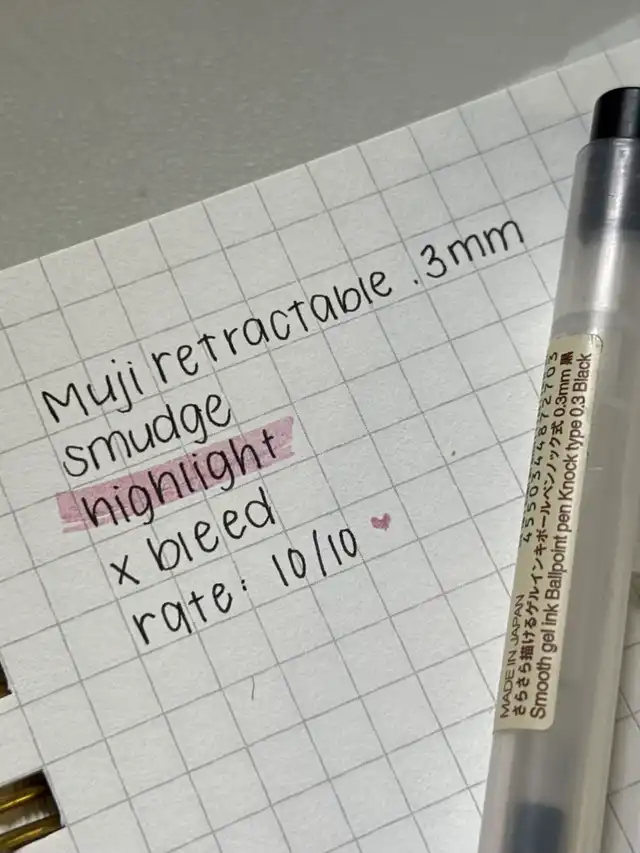 Muji retractable .3mm
smudge
highlight
x bleed
rate: 10/10
4550344872703
MADE IN JAPAN
さらさら描けるゲルインキボールペンノック式 0.3mm 黒
Smooth gel ink Ballpoint pen Knock type 0.3 Black